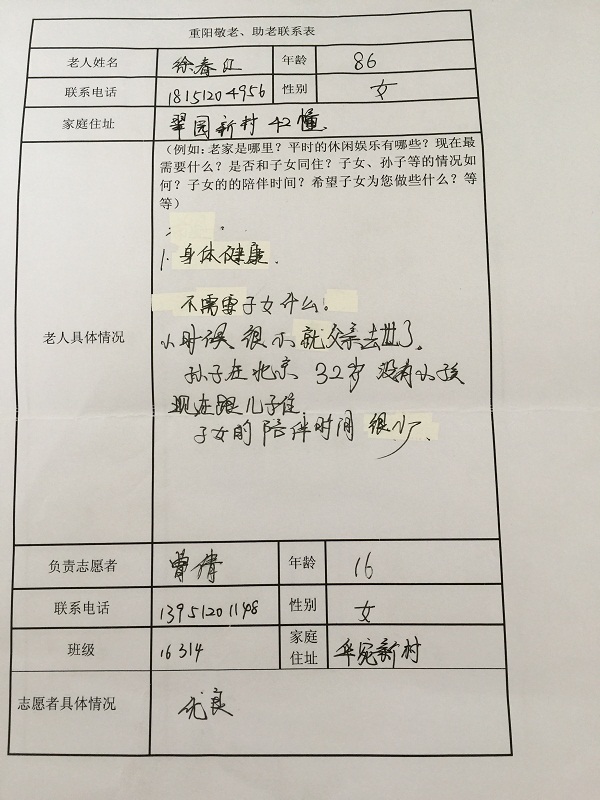 重阳敬老、助老联系表
老人姓名 徐春红 年龄 86
联系电话 18151204956 性别 女
家庭住址 翠园新村42幢
(例如:老家是哪里?平时的休闲娱乐有哪些?现在最
需要什么?是否和子女同住?子女、孙子等的情况如
何?子女的的陪伴时间?希望子女为您做些什么?等
等)
老人具体情况
1. 身体健康.
不需要子女什么。
小时候很小就父亲去世了。
孙子在北京 32岁 没有小孩
现在跟儿子住.
子女的陪伴时间 很少.
负责志愿者 曹倩 年龄 16
联系电话 13951201198 性别 女
班级 16314 家庭
住址 华宛新村
志愿者具体情况 优良